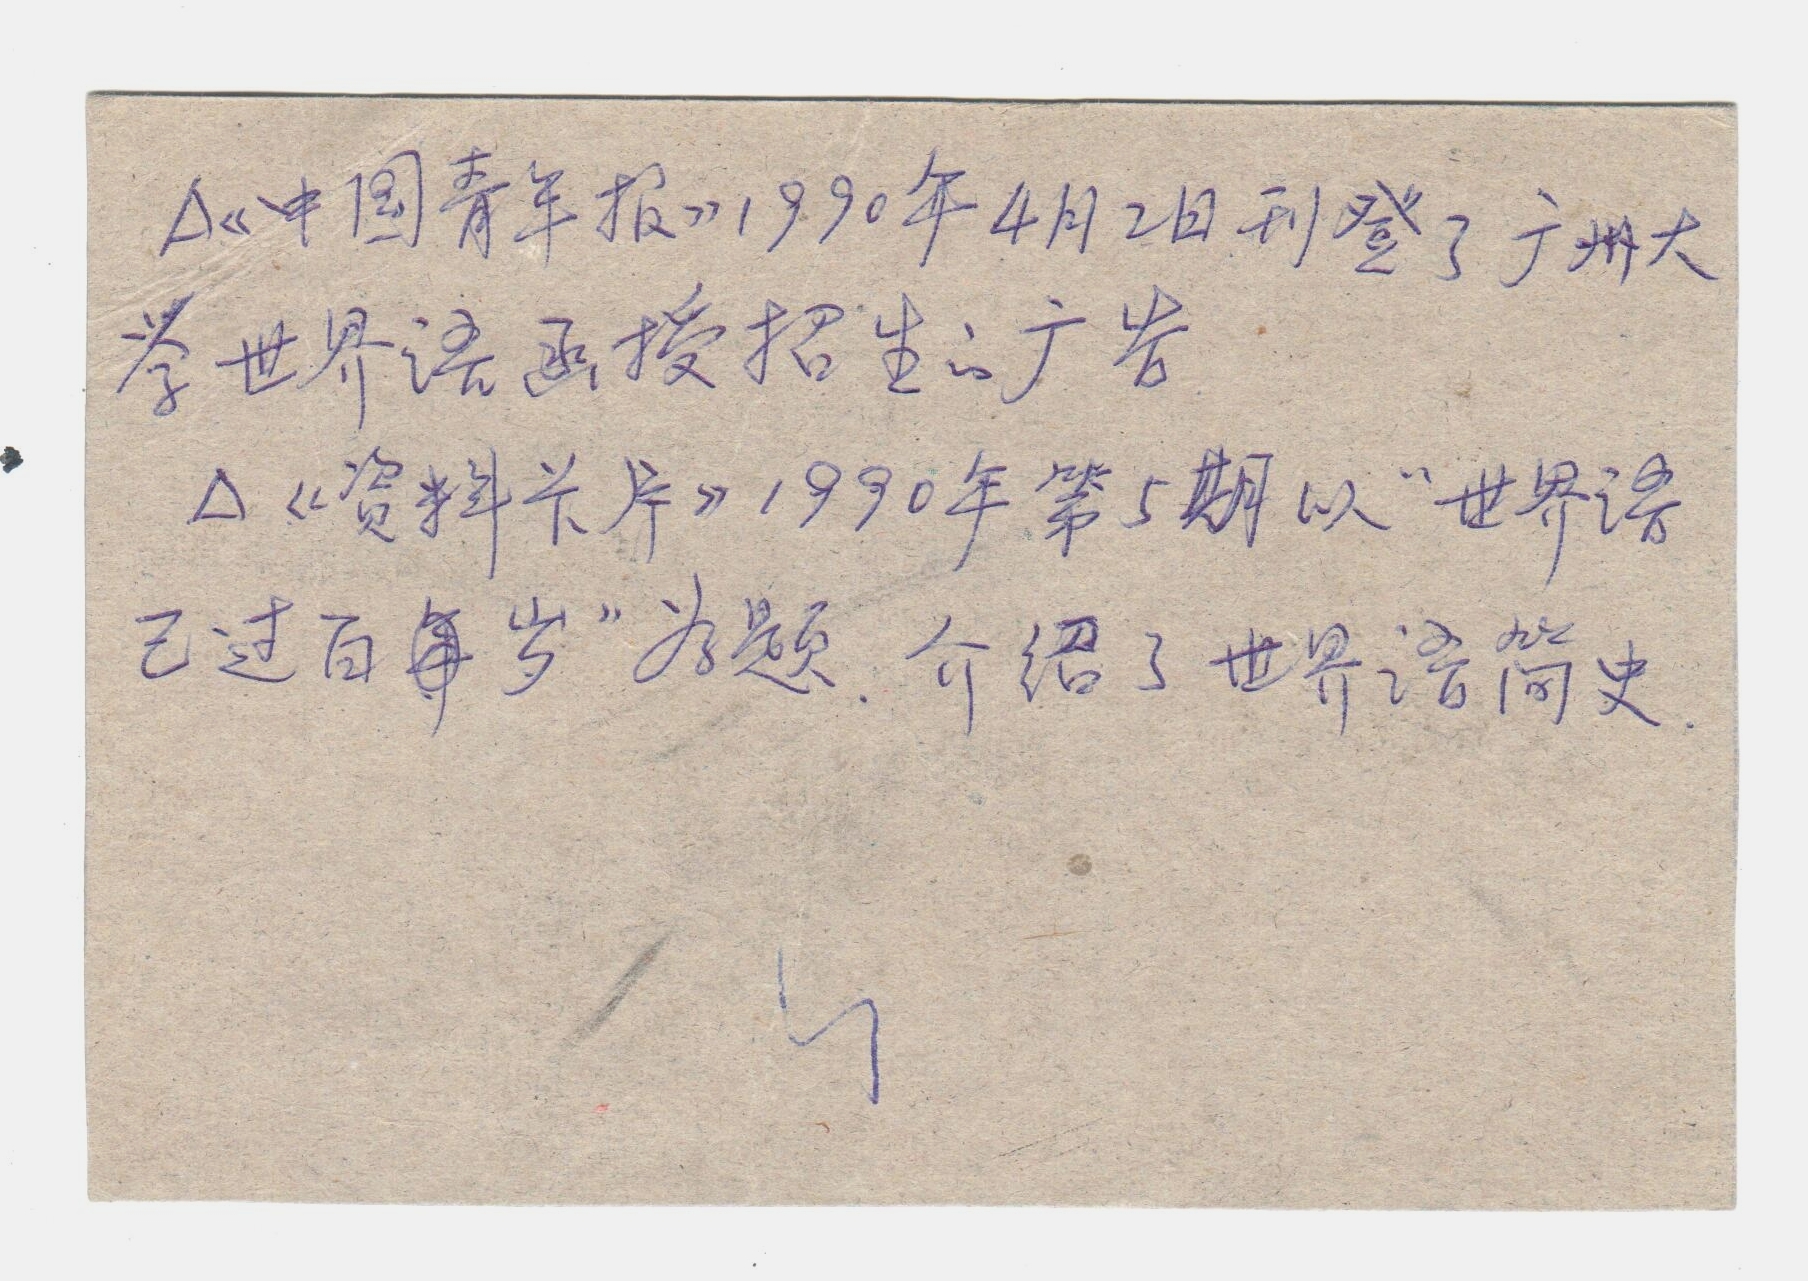 △《中国青年报》1990年4月2日刊登了广州大
学世界语函授招生的广告
△《资料卡片》1990年第5期以“世界语
已过百岁”为题.介绍了世界语简史.